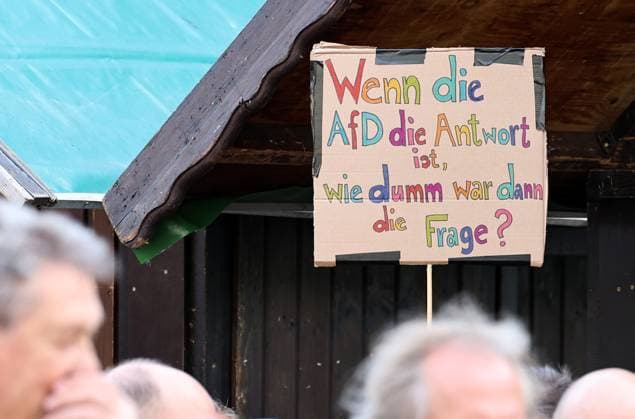 Wenn die
AfD die Antwort
ist,
wie dumm war dann
die Frage?